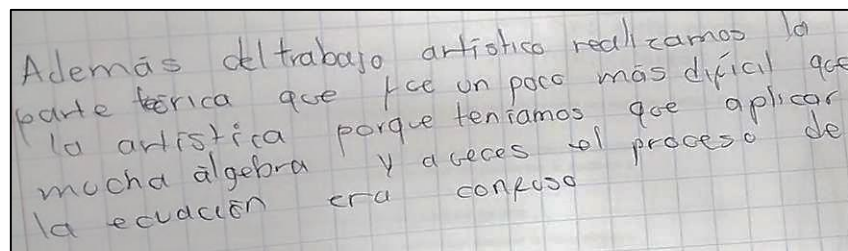 Además del trabajo artístico realizamos la
parte teórica que fue un poco más difícil que
la artística porque teniamos que aplicar
mucha álgebra y aveces el proceso de
la ecuación era confuso